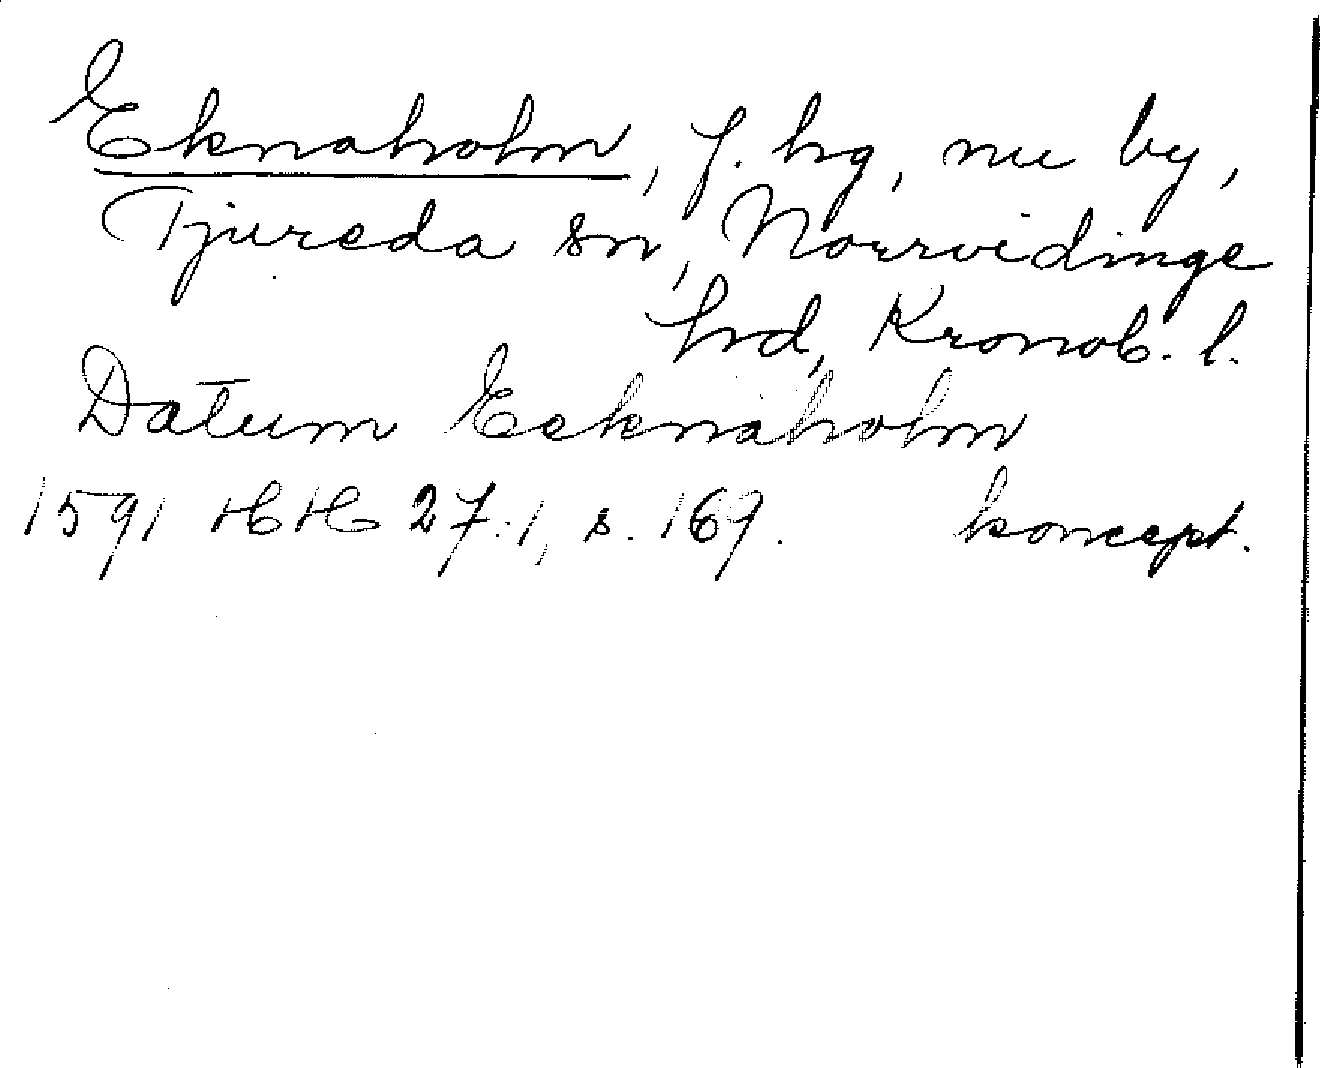 Eknaholm, f. hg, nu by,
Tjureda sn, Norrvidinge
hd, Kronob. l.
Datum Ecknaholm
1591 HH 27:1, s. 169. koncept.